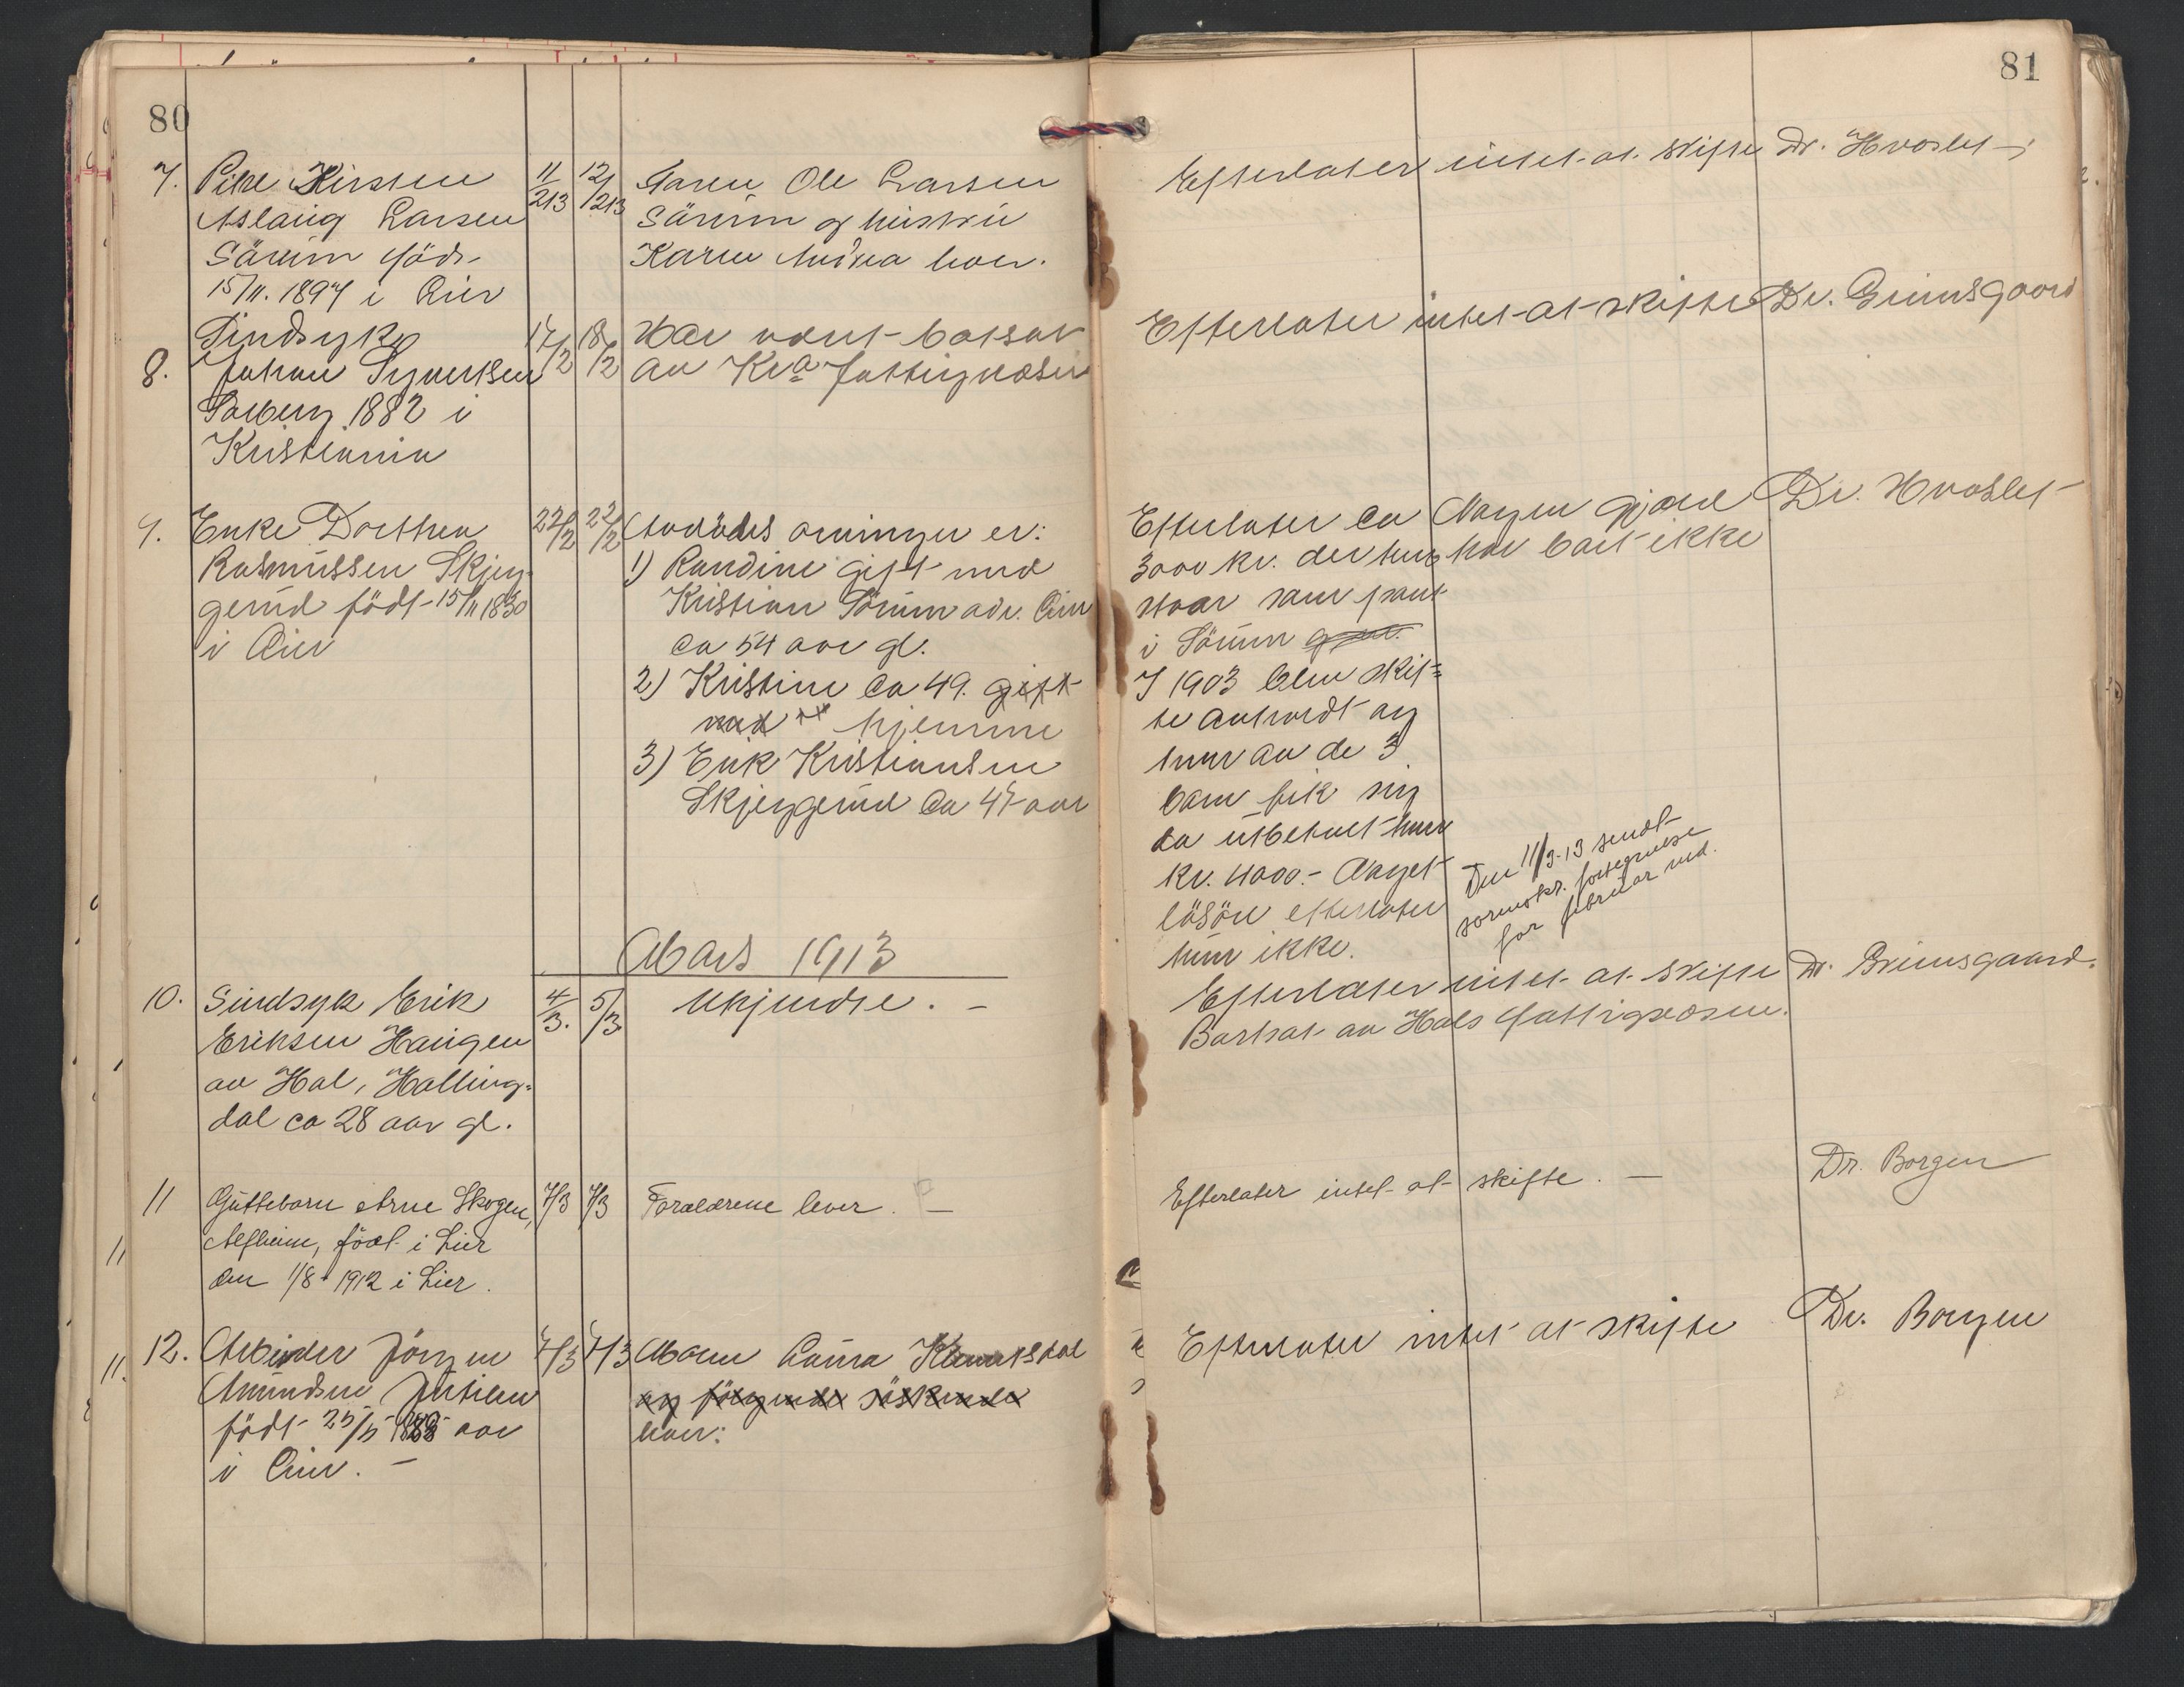 80
7. Pike Kirsten 11/2 13 12/2 13 Faren Ole Larsen
Aslaug Larsen Sörum og hustru
Sörum född Karen Andrea lever.
15/11. 1897 i Lier
Sindsyke 17/2 18/2 Har været bekostet
8. Johan Syversen av Kra Fattigvæsen
Solberg 1882 i
Kristiania
9. Enke Dorthea 22/2 22/2 Avdödes arvinger er:
Rasmussen Skjeg- 1) Randine gift med
gerud födt 15/11 1830 Kristian Sörum adr. Lier
i Lier ca 54 aar gl.
2) Kristine ca 49. gift
med hjemme
3) Erik Kristiansen
Skjeggerud ca 47 aar
Mars 1913
10. Sindsyk Erik 4/3. 5/3 Ukjendte. -
Eriksen Haugen
av Hol, Halling-
dal ca 28 aar gl.
11 Guttebarn Arne Skogen, 7/3 7/3 Forældrene lever. -
Alfheim, född i Lier
den 1/8 1912 i Lier.
12. Arbeider Jörgen 7/3 7/3 Moren Laura
Amundsen og følgende söskende
födt 25/5 1888 aar lever:
i Lier. -
81
Efterlater intet at skifte Dr. Hvoslef
Efterlater intet at skifte Dr. Grimsgaard
Efterlater ca Nogen gjæld Dr. Hvoslef
3000 kr. der hun har bart ikke
staar som pant
i Sörum
I 1903 blev skif-
te avholdt og
hver av de 3
barn fik sig
da utbetalt hver
kr. 4000.- Noget
lösöre efterlater
hun ikke.
Den 11/3-13 sendt
sorenskr. fortegnelse
for februar md.
Efterlater intet at skifte Dr. Grimsgaard.
Bekostet av Hols fattigvæsen.
Efterlater intet at skifte. - Dr. Borgen
Efterlater intet at skifte Dr. Borgen